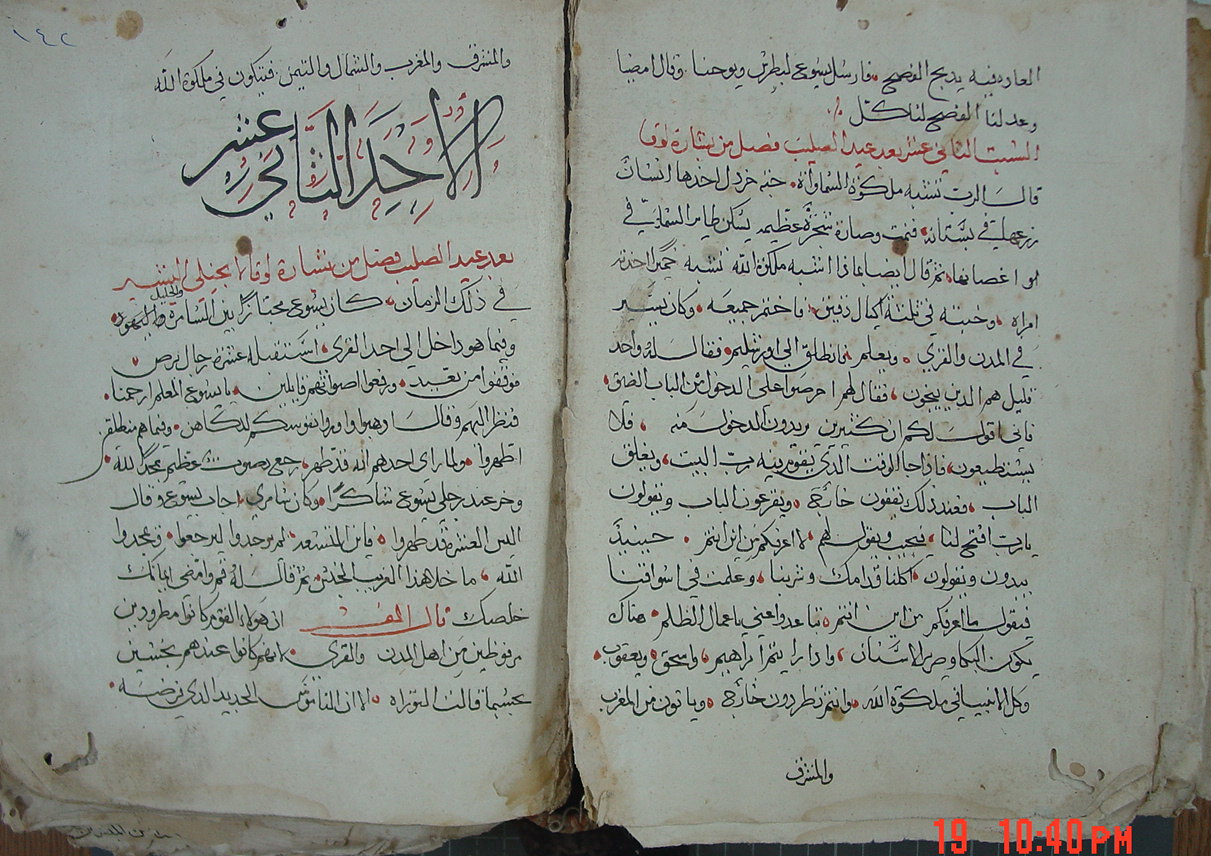 العاده فيه يدبح الفصح، فارسل يسوع لبطرس ويوحنا، وقال امضيا
وعدلنا الفصح لناكل
السبت الثاني عشر بعد عيد الصليب فصل من بشارة لوقا
قال الرب تشبه ملكوة السماواة، حبه خردل اخدها انسان
زرعها في بستانه فنمت وصارة شجرة عظيمه يسكن طاير السماء في
اغصانها، ثم قال ايضا بماذا اشبه ملكوة الله تشبه خميرا اخدته
امراه، وخبته في ثلثة اكيال دقيق، فاختمر جميعه، وكان يسير
في المدن والقري، ويعلم، فانطلق الي اورشليم، فقال له واحد
قليل هم الدين ينجون، فقال لهم احرصوا علي الدخول من الباب الضيق
فاني اقول لكم ان كثيرين يريدون الدخول منه، فلا
يستطيعون، فادا جا الوقت الدي يقوم فيه رب البيت، ويغلق
الباب، فعند ذلك يقفون خارج، ويقرعون الباب ويقولون
يارب افتح لنا، فيجيب ويقول لهم، لا اعرفكم من اين انتم، حينيد
يبدون ويقولون، اكلنا قدامك وشربنا، وعلمت في اسواقنا
فيقول ما اعرفكم من اين انتم، تباعدوا عني يا عمال الظلم، هناك
يكون البكا وصرير الاسنان، وادا رايتم ابراهيم، واسحق، ويعقوب
وكل الانبيا في ملكوة الله، وانتم تطردون خارج، وياتون من المغرب
والمشرق
١٤٢
والمشرق والمغرب والشمال والتيمن، فيتكون في ملكوة الله
الاحد الثاني عشر
بعد عيد الصليب فصل من بشارة لوقا الانجيلي البشير
في ذلك الزمان، كان يسوع مجتازا بين السامرة والجليل
وفيما هو داخل الي احد القري، استقبله عشرة رجال برص
فوقفوا من بعيد، ورفعوا اصواتهم قايلين، يا يسوع المعلم ارحمنا
فنظر اليهم وقال اذهبوا واوروا نفوسكم للكاهن، وفيما هم منطلقين
اطهروا، ولما راي احدهم انه قد طهر، رجع بصوت عظيم يمجد الله
وخر عند رجلي يسوع شاكرا، وكان سامري، اجاب يسوع وقال
اليس العشرة قد طهروا، فاين التسعه، لم يوجدوا ليرجعوا، ويمجدوا
الله، ما خلا هذا الغريب الجنس، ثم قال له قم وامضي ايمانك
خلصك قال المفسر ان هولاء القوم كانوا مطرودين
مرفوضين من اهل المدن والقري، لانهم كانوا عندهم نجسين
بحسبما قالت التوراه، الا ان الناموس الجديد الدي
19 10:40 PM